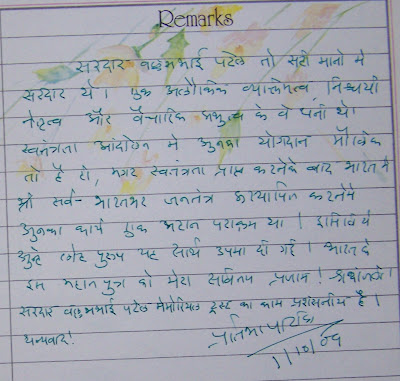 Remarks
सरदार वल्लभभाई पटेल तो सही मानो में
सरदार थे। एक अलौकिक व्यक्तिमत्व, निश्चयी
नेतृत्व और वैचारिक प्रभुत्व के वे धनी थे।
स्वतंत्रता आंदोलन में उनका योगदान मौलिक
तो है ही, मगर स्वतंत्रता प्राप्त करनेके बाद भारत में
भी सर्व-भारतभर जनतंत्र प्रस्थापित करनेमें
उनका कार्य एक महान पराक्रम था। इसिलिये
उन्हे लोह पुरुष यह सार्थ उपमा दी गई। भारत के
इस महान पुत्र को मेरा सविनय प्रणाम! श्रद्धांजली।
सरदार वल्लभभाई पटेल मेमोरियल ट्रस्ट का काम प्रशंसनीय है।
धन्यवाद!
प्रतिभा पाटील
1/10/09